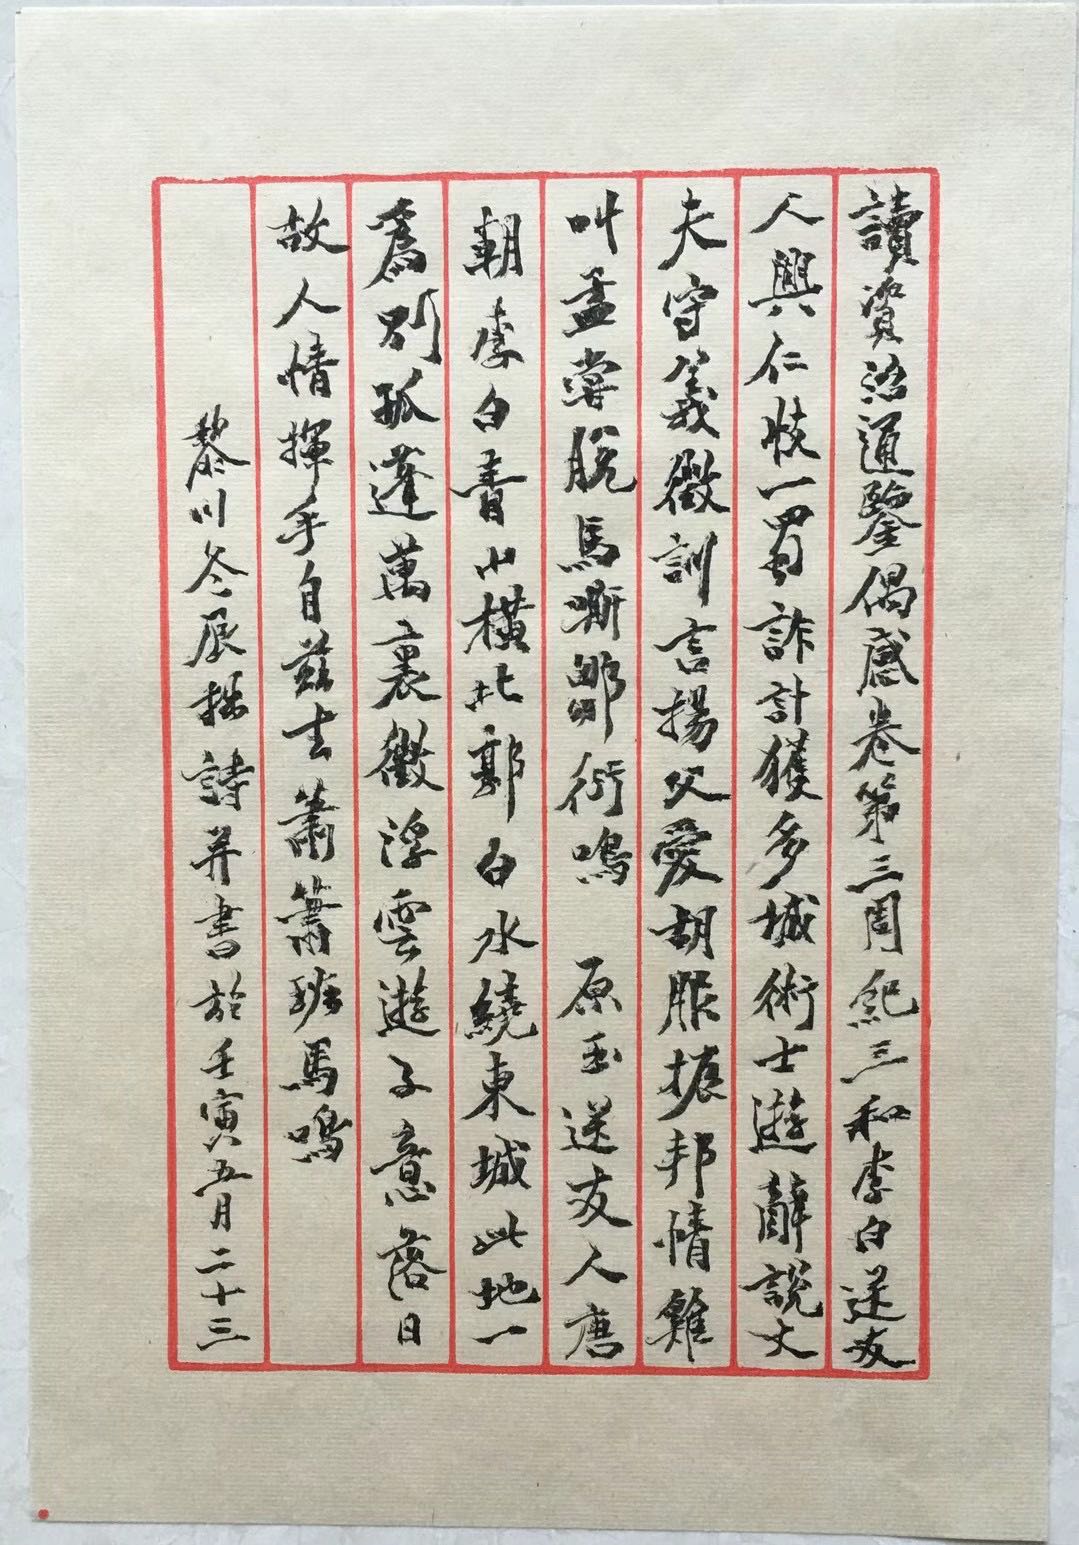 讀資治通鑒偶感卷第三周紀三和李白送友
人興仁恢一蜀詐計獲多城術士遊辭說丈
夫守義徵訓言揚父愛胡服擴邦情雞
叫孟嘗脫馬嘶鄒衍鳴 原玉送友人唐
朝李白青山橫北郭白水繞東城此地一
為別孤蓬萬裏徵浮雲遊子意落日
故人情揮手自茲去蕭蕭班馬鳴
黎川冬辰拙詩并書於壬寅五月二十三